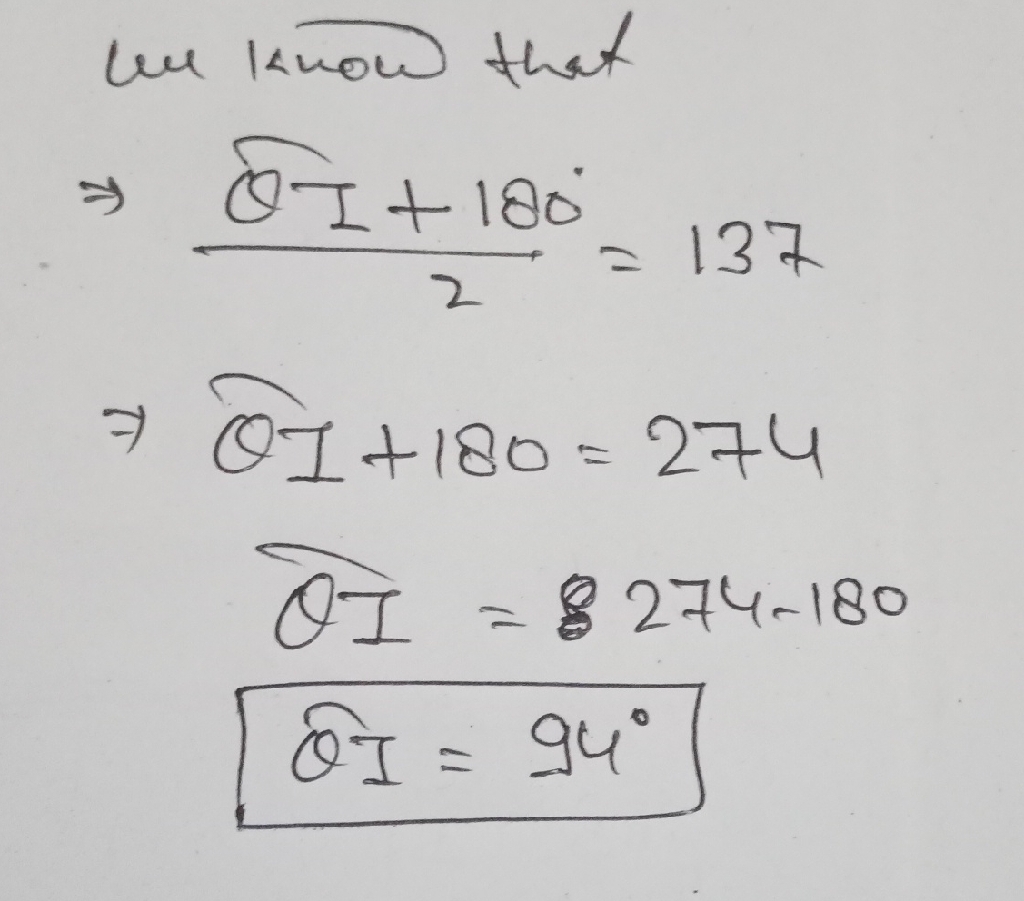 we know that
⇒ OI + 180° / 2 = 137
⇒ OI + 180 = 274
OI = 274 - 180
OI = 94°